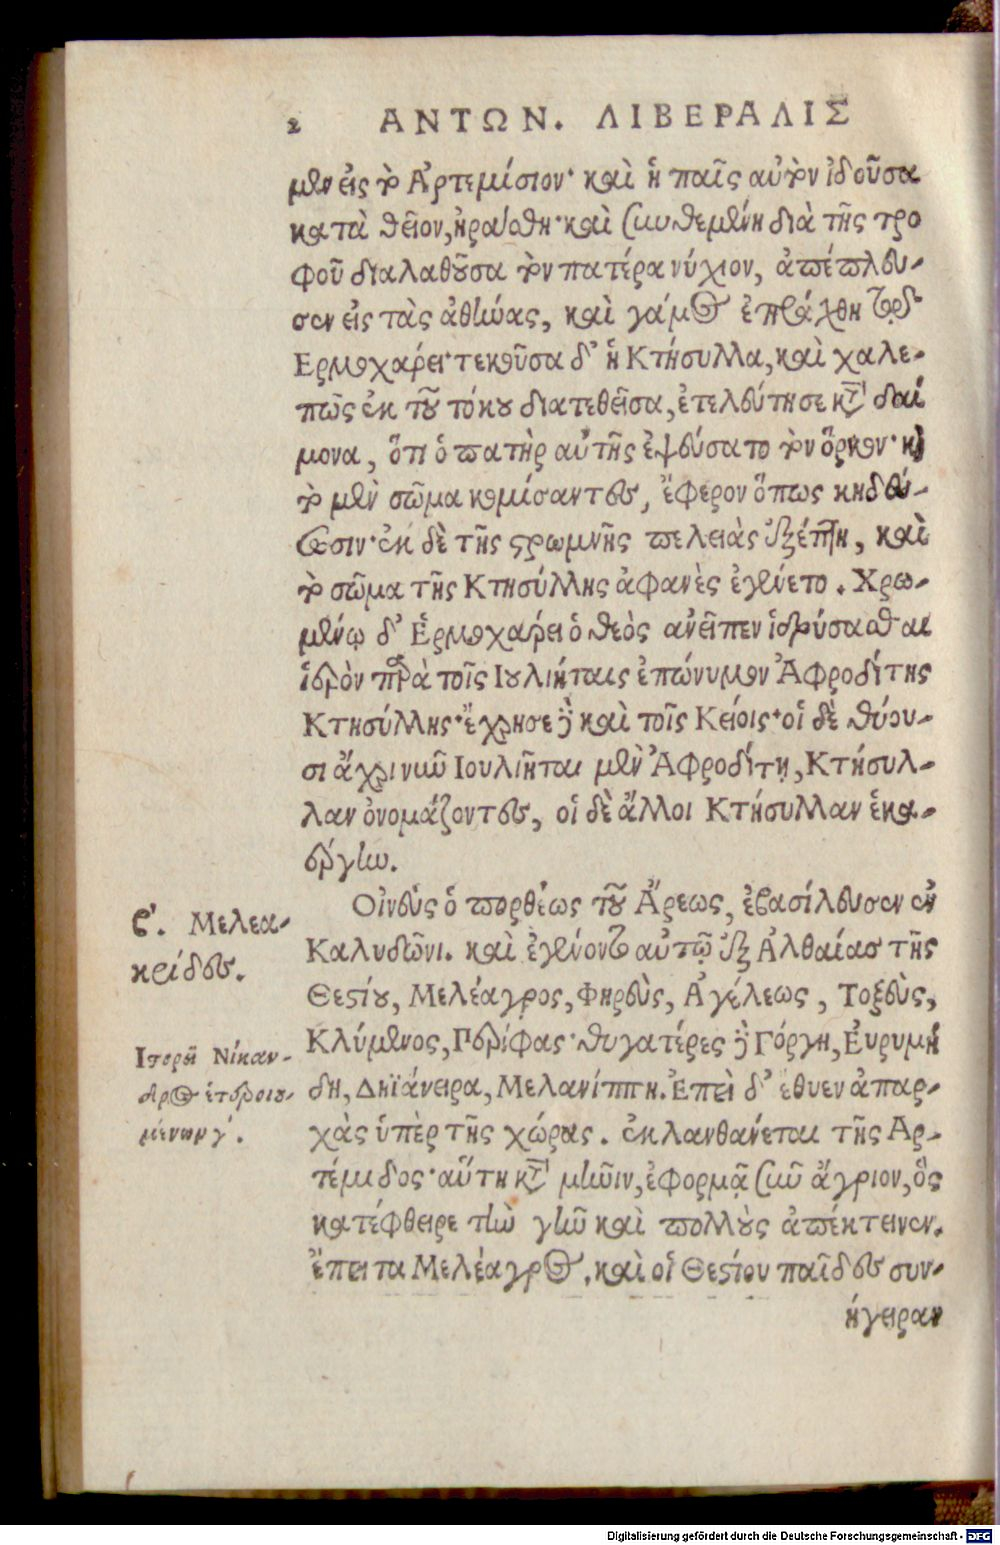 2 ΑΝΤΩΝ. ΛΙΒΕΡΑΛΙΣ
μὲν εἰς τὸ Ἀρτεμίσιον· καὶ ἡ παῖς αὐτὸν ἰδοῦσα
κατὰ θεῖον, ἠράσθη· καὶ συνθεμένη διὰ τῆς τρο
φοῦ διαλαθοῦσα τὸν πατέρα νύχιον, ἀπέπλευ-
σεν εἰς τὰς ἀθήνας, καὶ γάμος ἐπράχθη τῷδ
Ερμοχάρει· τεκοῦσα δ' ἡ Κτήσυλλα, καὶ χαλε-
πῶς ἐκ τοῦ τόκου διατεθεῖσα, ἐτελεύτησε κατὰ δαί
μονα, ὅτι ὁ πατὴρ αὐτῆς ἐψεύσατο τὸν ὅρκον· καὶ
τὸ μὲν σῶμα κομίσαντες, ἔφερον ὅπως κηδεύ-
σωσιν· ἐκ δὲ τῆς στρωμνῆς πελειὰς ἐξέπτη, καὶ
τὸ σῶμα τῆς Κτησύλλης ἀφανὲς ἐγένετο. Χρω-
μένῳ δ' Ἑρμοχάρει ὁ θεὸς ἀνεῖπεν ἱδρύσασθαι
ἱερὸν παρὰ τοῖς Ιουλιήταις ἐπώνυμον Ἀφροδίτης
Κτησύλλης· ἔχρησε δὲ καὶ τοῖς Κείοις· οἱ δὲ θύου-
σι ἄχρι νῦν Ιουλιῆται μὲν Ἀφροδίτη, Κτήσυλ-
λαν ὀνομάζοντες, οἱ δὲ ἄλλοι Κτήσυλλαν ἑκα-
έργην.
ϛ'. Μελεα-
κρίδες.
Οἰνεὺς ὁ πορθέως τοῦ Ἄρεως, ἐβασίλευσεν ἐν
Καλυδῶνι. καὶ ἐγένοντο αὐτῷ ἐξ Ἀλθαίας τῆς
Θεστίου, Μελέαγρος, Φηρεὺς, Ἀγέλεως, Τοξεὺς,
Κλύμενος, Περίφας· θυγατέρες δὲ Γόργη, Εὐρυμή
δη, Δηϊάνειρα, Μελανίππη. Ἐπεὶ δ' ἔθυεν ἀπαρ-
χὰς ὑπὲρ τῆς χώρας. ἐκλανθάνεται τῆς Αρ-
τέμιδος· αὕτη κατὰ μῆνιν, ἐφορμᾷ σῦν ἄγριον, ὃς
κατέφθειρε τὴν γῆν καὶ πολλοὺς ἀπέκτεινεν.
ἔπειτα Μελέαγρος, καὶ οἱ Θεστίου παῖδες συν-
Ιστορεῖ Νίκαν-
δρος ἑτεροιου-
μένων γ'.
ήγειραν
Digitalisierung gefördert durch die Deutsche Forschungsgemeinschaft - DFG